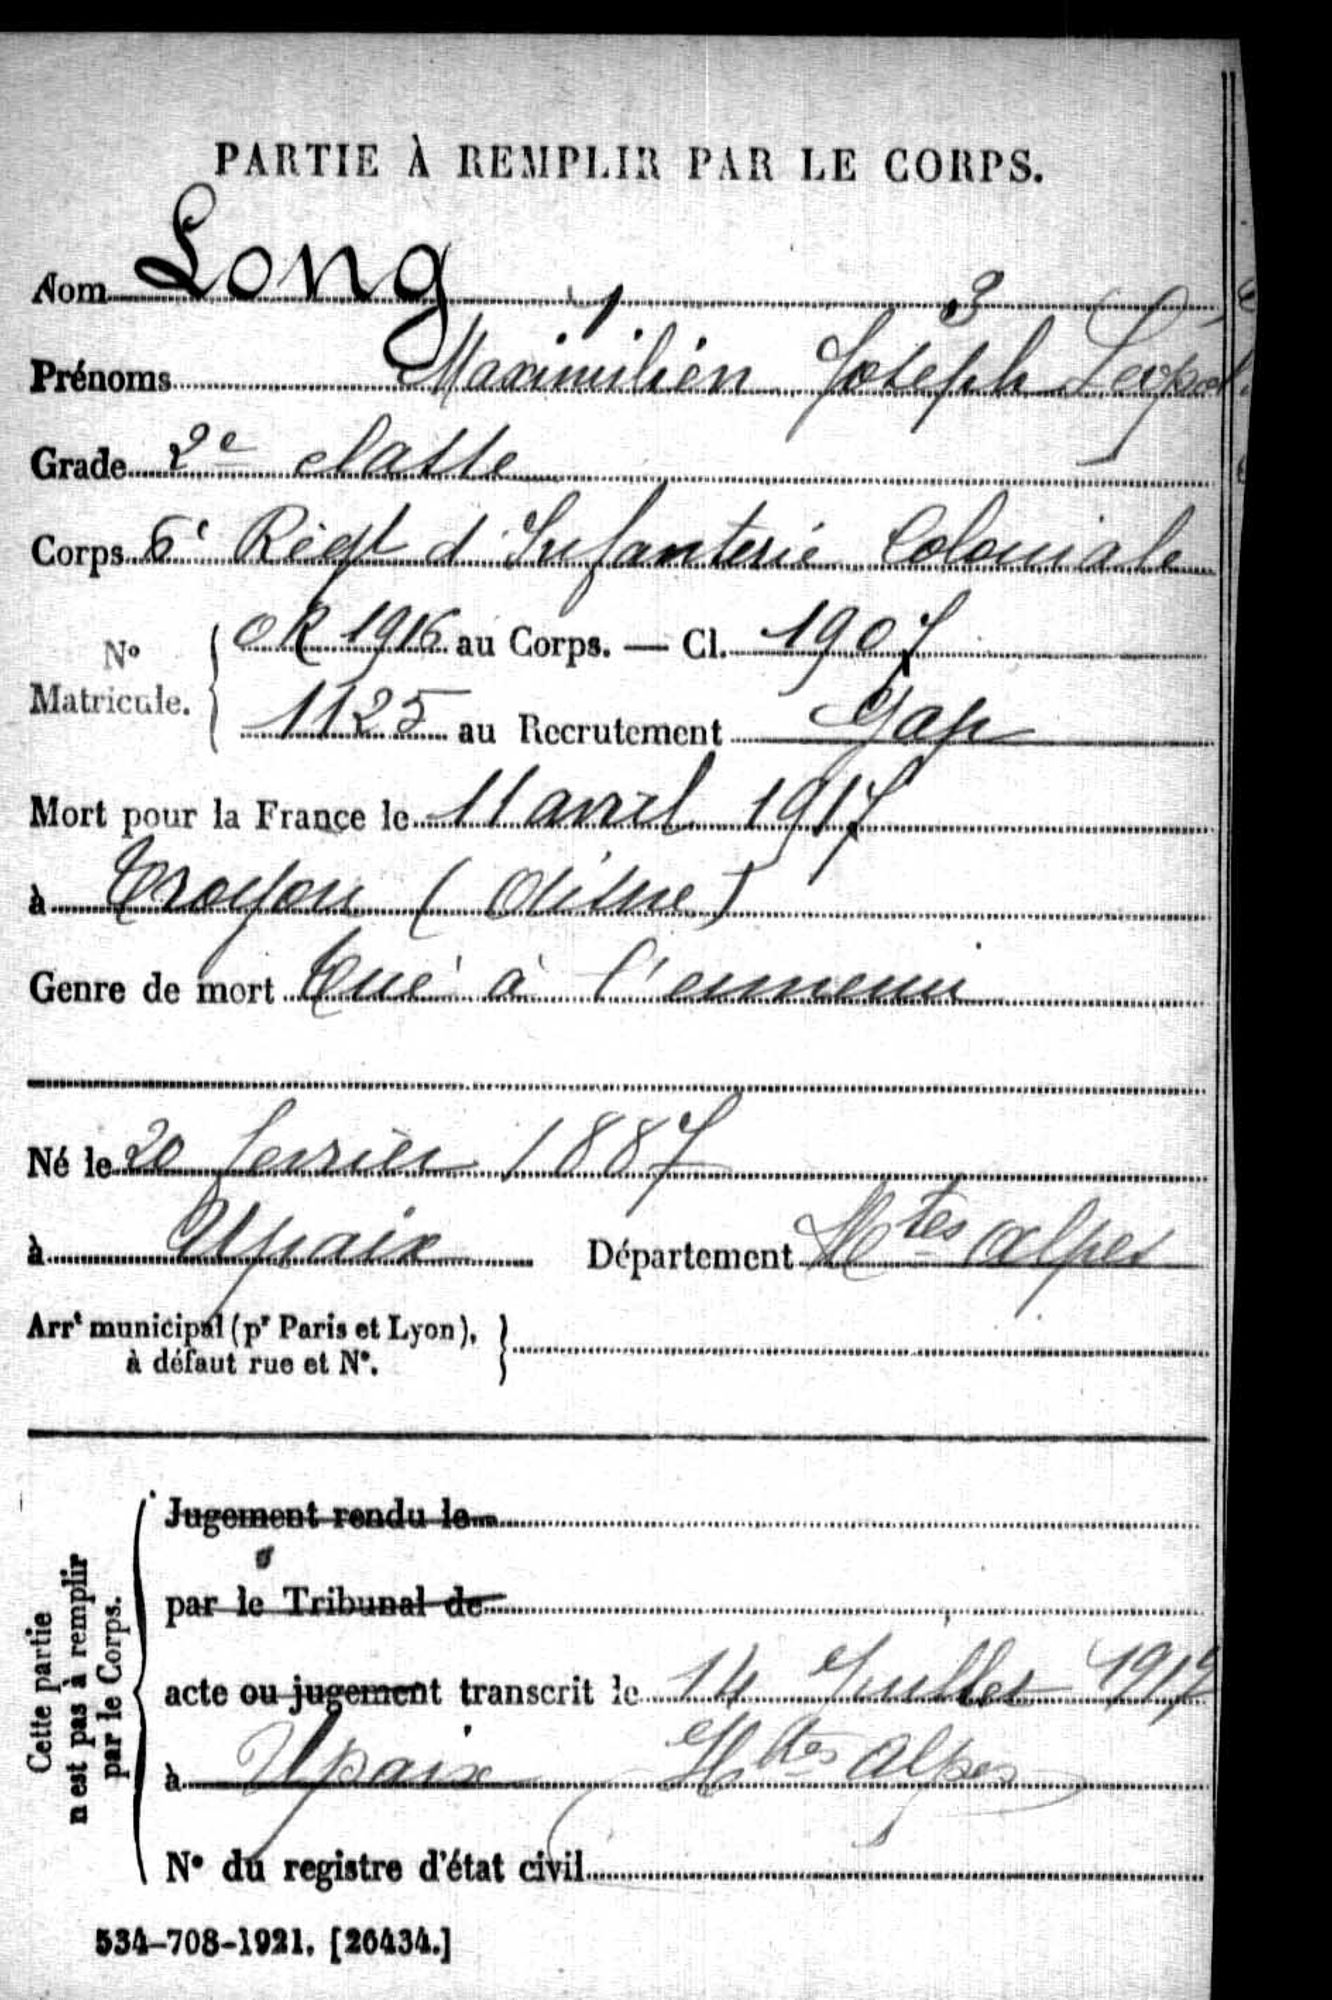 PARTIE À REMPLIR PAR LE CORPS.
Nom Long
1 3
Prénoms Maximilien Joseph
Grade 2e classe
Corps 6e Régt d'Infanterie Coloniale
N° Matricule. 1916 au Corps. — Cl. 1907
1125 au Recrutement Gap
Mort pour la France le 11 avril 1917
à Troyon (Aisne)
Genre de mort Tué à l'ennemi
Né le 20 fevrier 1887
à Upaix Département Htes Alpes
Arrt municipal (pr Paris et Lyon),
à défaut rue et N°.
Cette partie
n'est pas à remplir
par le Corps.
Jugement rendu le
par le Tribunal de
acte ou jugement transcrit le 14 Juillet
à Upaix Htes Alpes
N° du registre d'état civil
534-708-1921. [26434.]